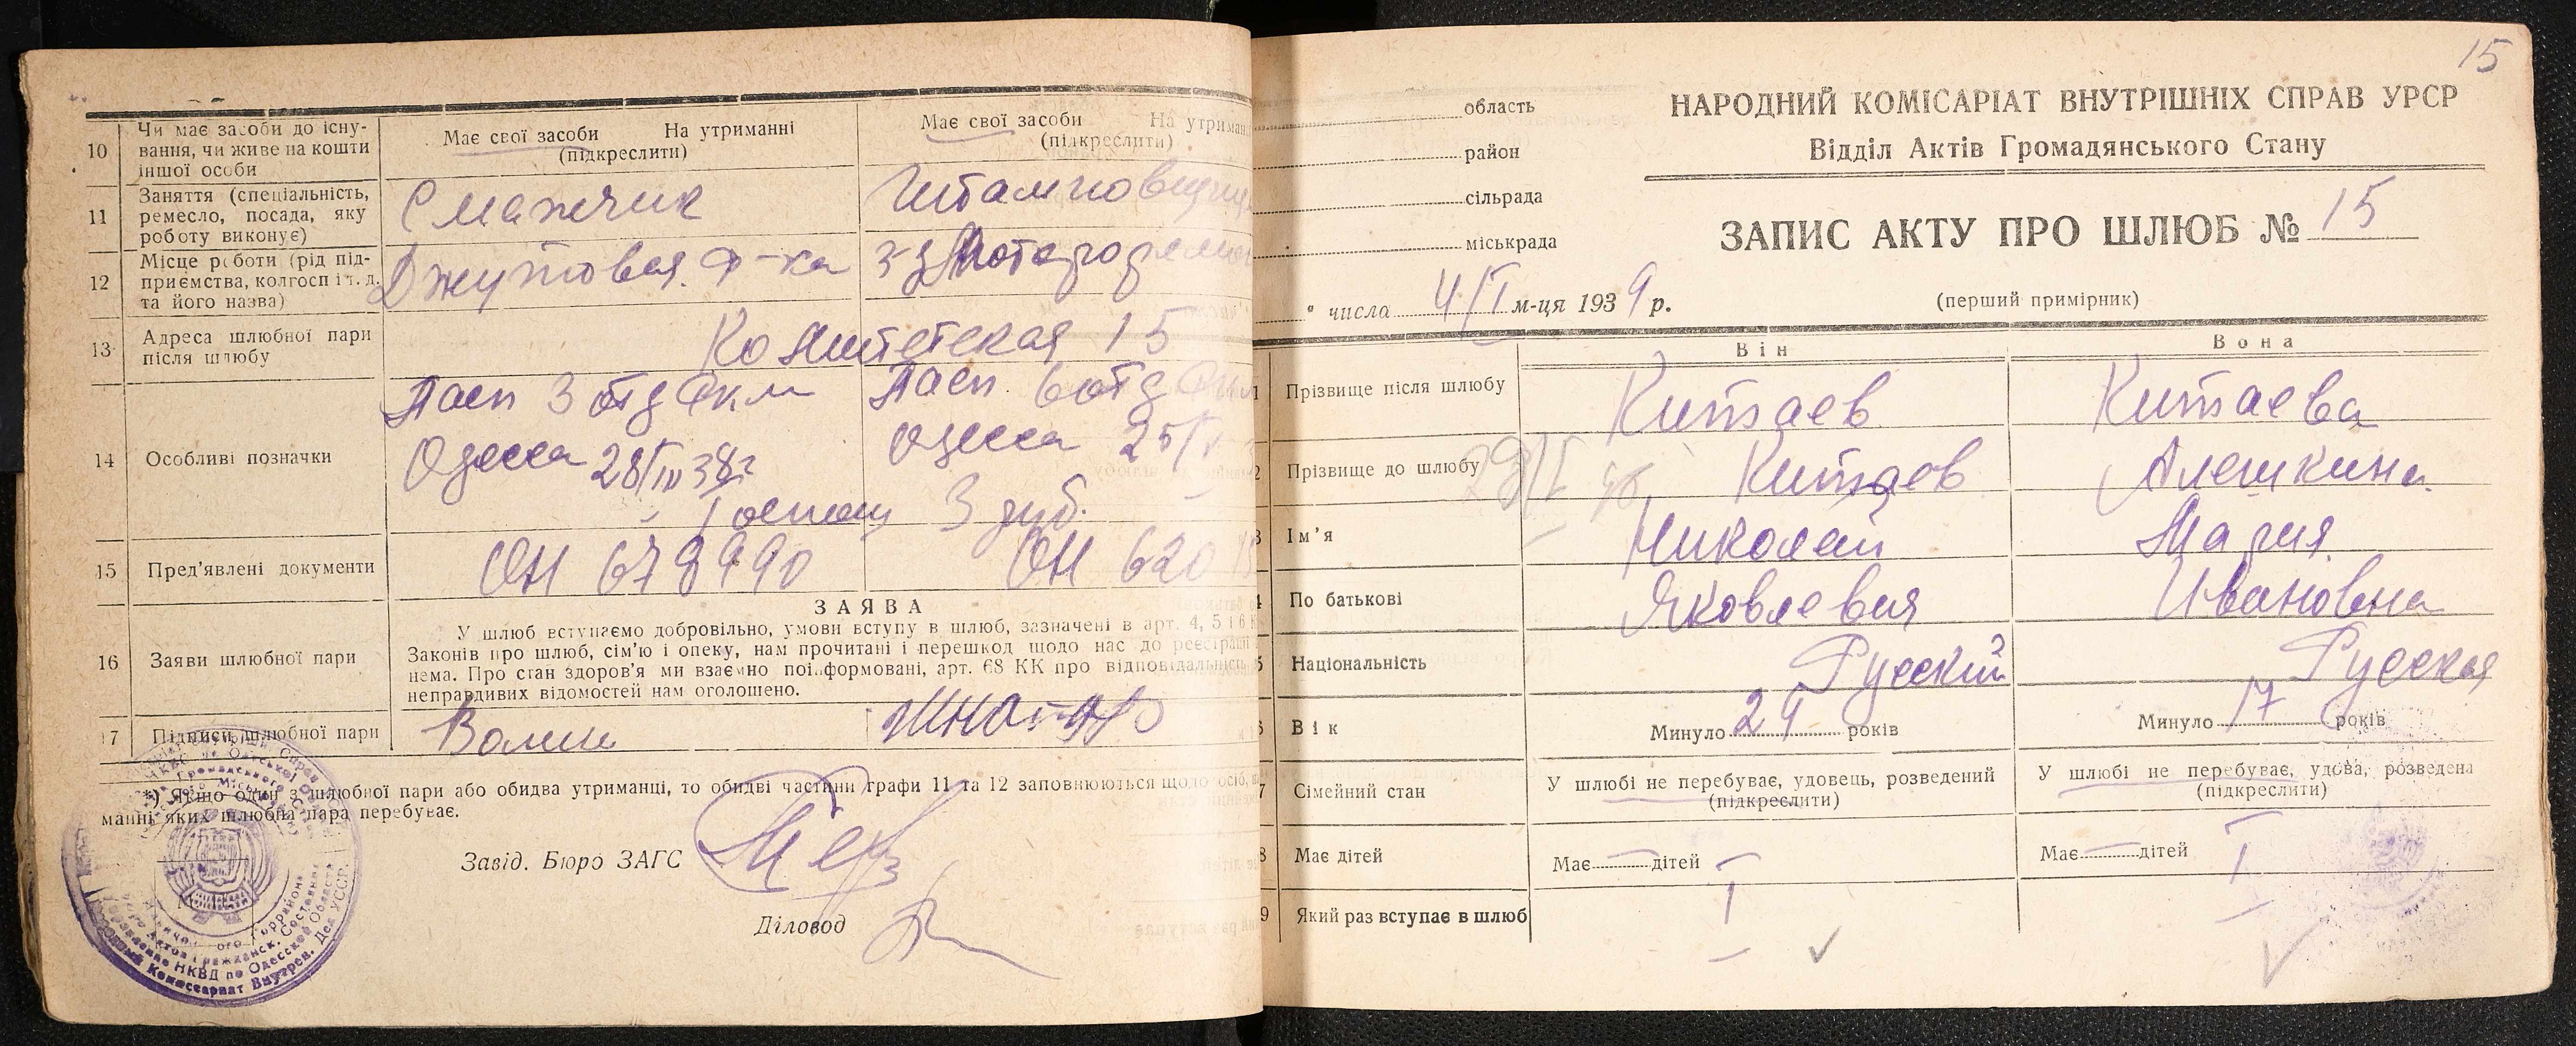 10
Чи має засоби до існу-
вання, чи живе на кошти
іншої особи
Має свої засоби На утриманні
(підкреслити)
Має свої засоби На утриман
(підкреслити)
11
Заняття (спеціальність,
ремесло, посада, яку
роботу виконує)
Смажчик
Штамповщица
12
Місце роботи (рід під-
приємства, колгосп і т. д.
та його назва)
Джутовая ф-ка
13
Адреса шлюбної пари
після шлюбу
Комитетская 15
14
Особливі позначки
Пасп 3 отд
Одесса 28/IV 38г
Пасп. 6 отд
Одесса 25/
3 руб.
15
Пред'явлені документи
ОН 678990
ОН 620
16
Заяви шлюбної пари
ЗАЯВА
У шлюб вступаємо добровільно, умови вступу в шлюб, зазначені в арт. 4, 5 і 6 К
Законів про шлюб, сім'ю і опеку, нам прочитані і перешкод щодо нас до реєстрації
нема. Про стан здоров'я ми взаємно поінформовані, арт. 68 КК про відповідальність
неправдивих відомостей нам оголошено.
17
Підписи шлюбної пари
*) Якщо один з шлюбної пари або обидва утриманці, то обидві частини графи 11 та 12 заповнюються щодо осіб,
манні яких шлюбна пара перебуває.
Завід. Бюро ЗАГС
Діловод
15
область
район
сільрада
міськрада
НАРОДНИЙ КОМІСАРІАТ ВНУТРІШНІХ СПРАВ УРСР
Відділ Актів Громадянського Стану
ЗАПИС АКТУ ПРО ШЛЮБ № 15
" числа 4/I м-ця 1939 р.
(перший примірник)
Він
Вона
1 Прізвище після шлюбу
Китаев
Китаева
2 Прізвище до шлюбу
Китаев
Алешкина
3 Ім'я
Николай
Мария
4 По батькові
Яковлевич
Ивановна
5 Національність
Русский
Русская
6 Вік
Минуло 24 років
Минуло 17 років
7 Сімейний стан
У шлюбі не перебуває, удовець, розведений
(підкреслити)
У шлюбі не перебуває, удова, розведена
(підкреслити)
8 Має дітей
Має — дітей
Має — дітей
9 Який раз вступає в шлюб
I
I